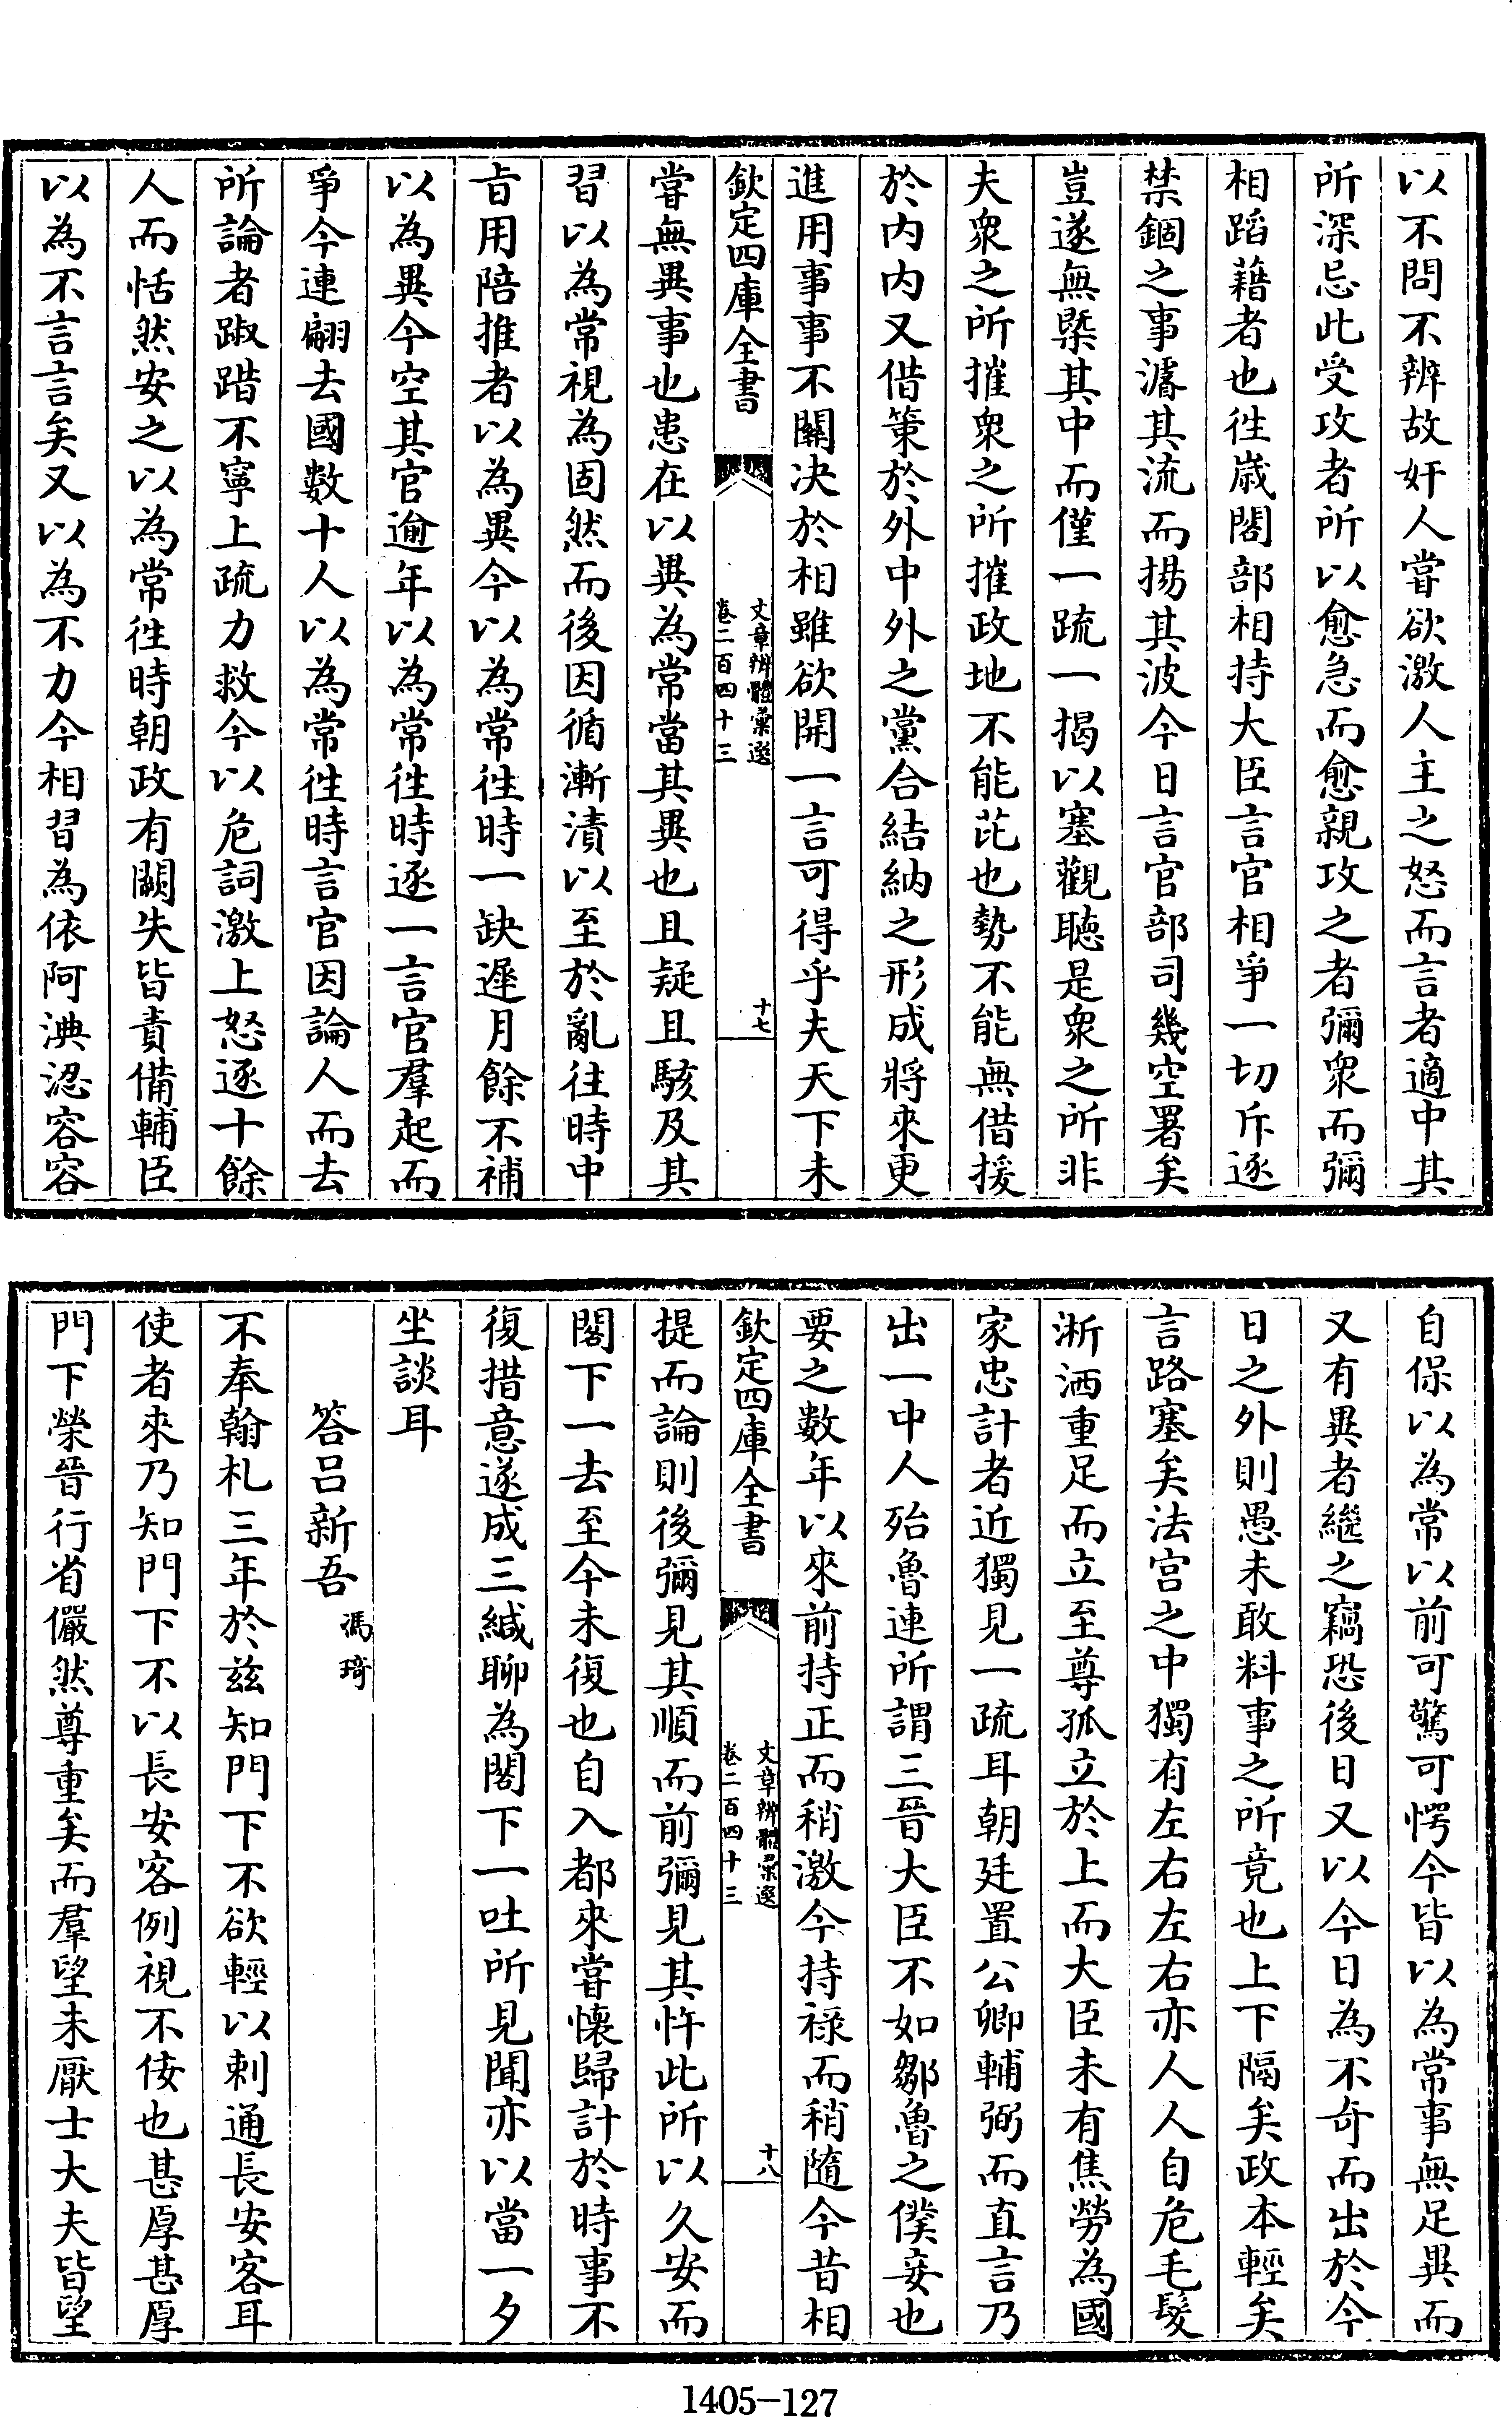 以不問不辨故奸人嘗欲激人主之怒而言者適中其
所深忌此受攻者所以愈急而愈親攻之者彌衆而彌
相蹈藉者也徃歳閣部相持大臣言官相爭一切斥逐
禁錮之事濬其流而揚其波今日言官部司幾空署矣
豈遂無槩其中而僅一疏一揭以塞觀聽是衆之所非
夫衆之所摧衆之所摧政地不能芘也勢不能無借援
於内内又借策於外中外之黨合結納之形成將來更
進用事事不關决於相雖欲開一言可得乎夫天下未
欽定四庫全書
文章辨體彙選
卷二百四十三
十七
嘗無異事也患在以異為常當其異也且疑且駭及其
習以為常視為固然而後因循漸漬以至於亂往時中
㫖用陪推者以為異今以為常徃時一缺遲月餘不補
以為異今空其官逾年以為常徃時逐一言官羣起而
爭今連翩去國數十人以為常徃時言官因論人而去
所論者踧踖不寧上疏力救今以危詞激上怒逐十餘
人而恬然安之以為常徃時朝政有闕失皆責備輔臣
以為不言言矣又以為不力今相習為依阿淟涊容容
自保以為常以前可驚可愕今皆以為常事無足異而
又有異者繼之竊恐後日又以今日為不奇而出於今
日之外則愚未敢料事之所竟也上下隔矣政本輕矣
言路塞矣法宫之中獨有左右左右亦人人自危毛髮
淅洒重足而立至尊孤立於上而大臣未有焦勞為國
家忠計者近獨見一疏耳朝廷置公卿輔弼而直言乃
出一中人殆魯連所謂三晉大臣不如鄒魯之僕妾也
要之數年以來前持正而稍激今持禄而稍隨今昔相
欽定四庫全書
文章辨體彙選
卷二百四十三
十八
提而論則後彌見其順而前彌見其忤此所以久安而
閣下一去至今未復也自入都來嘗懷歸計於時事不
復措意遂成三緘聊為閣下一吐所見聞亦以當一夕
坐談耳
答呂新吾 馮琦
不奉翰札三年於兹知門下不欲輕以剌通長安客耳
使者來乃知門下不以長安客例視不佞也甚厚甚厚
門下榮晉行省儼然尊重矣而羣望未厭士大夫皆望
1405-127